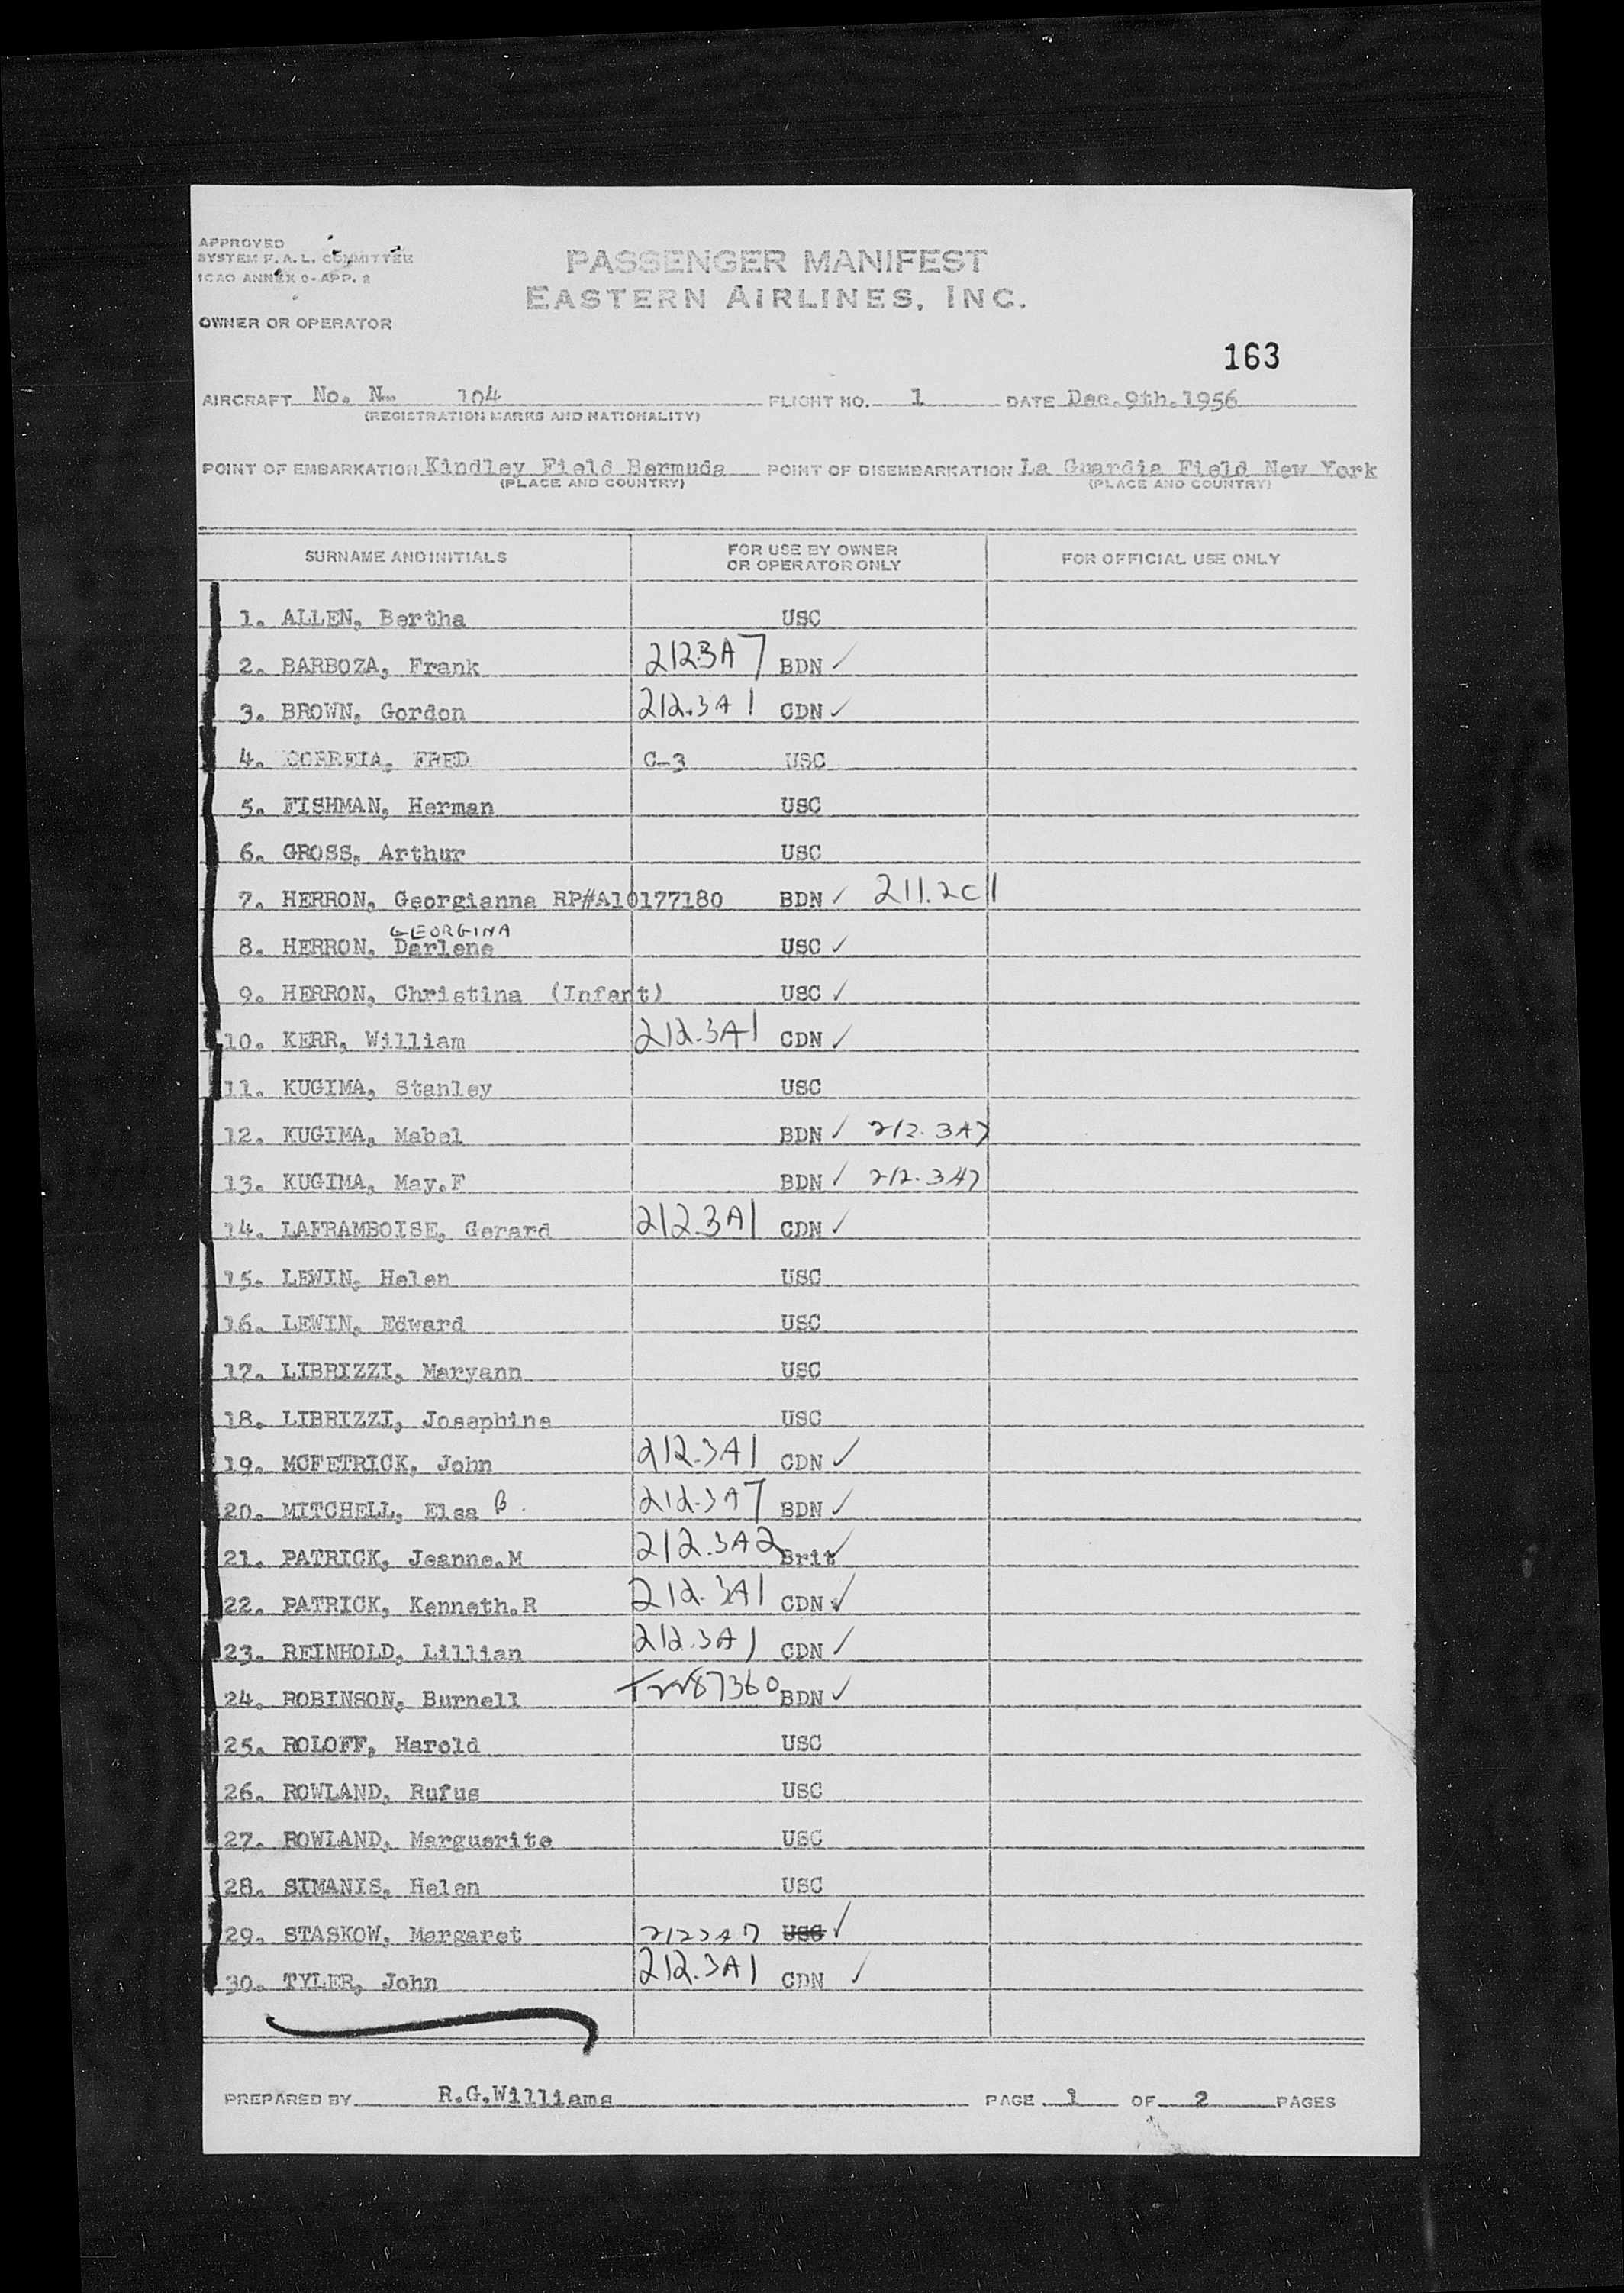 APPROVED
SYSTEM F.A.L. COMMITTEE
ICAO ANNEX 9-APP. 2
PASSENGER MANIFEST
EASTERN AIRLINES, INC.
OWNER OR OPERATOR
163
AIRCRAFT No. N 104 FLIGHT NO. 1 DATE Dec.9th.1956
(REGISTRATION MARKS AND NATIONALITY)
POINT OF EMBARKATION Kindley Field Bermuda POINT OF DISEMBARKATION La Guardia Field New York
(PLACE AND COUNTRY) (PLACE AND COUNTRY)
SURNAME AND INITIALS FOR USE BY OWNER OR OPERATOR ONLY FOR OFFICIAL USE ONLY
1. ALLEN, Bertha USC
2. BARBOZA, Frank 212.3A7 BDN ✓
3. BROWN, Gordon 212.3A1 CDN ✓
4. CORREIA, FRED C-3 USC
5. FISHMAN, Herman USC
6. GROSS, Arthur USC
7. HERRON, Georgianna RP#A10177180 BDN ✓ 211.2C11
GEORGINA
8. HERRON, Darlene USC ✓
9. HERRON, Christina (Infant) USC ✓
10. KERR, William 212.3A1 CDN ✓
11. KUGIMA, Stanley USC
12. KUGIMA, Mabel BDN ✓ 212.3A7
13. KUGIMA, May.F BDN ✓ 212.3A7
14. LAFRAMBOISE, Gerard 212.3A1 CDN ✓
15. LEWIN, Helen USC
16. LEWIN, Edward USC
17. LIBRIZZI, Maryann USC
18. LIBRIZZI, Josephine USC
19. MCFETRICK, John 212.3A1 CDN ✓
20. MITCHELL, Elsa B. 212.3A7 BDN ✓
21. PATRICK, Jeanne.M 212.3A2 Brit ✓
22. PATRICK, Kenneth.R 212.3A1 CDN ✓
23. REINHOLD, Lillian 212.3A1 CDN ✓
24. ROBINSON, Burnell 87360 BDN ✓
25. ROLOFF, Harold USC
26. ROWLAND, Rufus USC
27. ROWLAND, Marguerite USC
28. SIMANIS, Helen USC
29. STASKOW, Margaret 212.3A7 USC ✓
30. TYLER, John 212.3A1 CDN ✓
PREPARED BY R.G.Williams PAGE 1 OF 2 PAGES